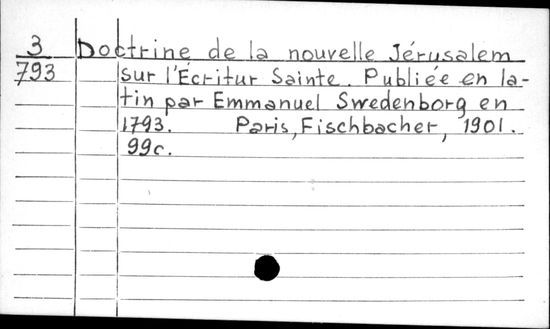 3 Doctrine de la nouvelle Jérusalem
793 sur l'Écritur Sainte. Publiée en la-
tin par Emmanuel Swedenborg en
1793. Paris, Fischbacher, 1901.
99c.